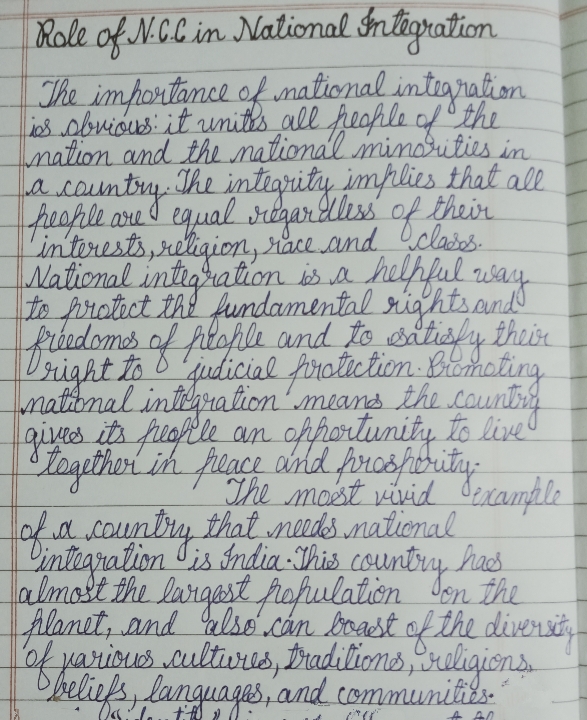 Role of N.C.C in National Integration
The importance of national integration
is obvious: it unites all people of the
nation and the national minorities in
a country. The integrity implies that all
people are equal regardless of their
interests, religion, race and class.
National integration is a helpful way
to protect the fundamental rights and
freedoms of people and to satisfy their
right to judicial protection. Promoting
national integration means the country
gives its people an opportunity to live
together in peace and prosperity.
The most vivid example
of a country that needs national
integration is India. This country has
almost the largest population on the
planet, and also can boast of the diversity
of various cultures, traditions, religions,
beliefs, languages, and communities.